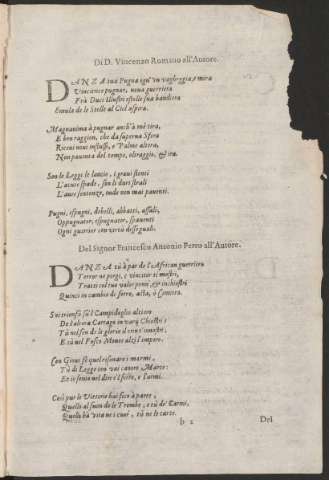 Di D. Vincenzo Romano all'Autore.
DANZA tua Pugna ogn'un vagheggia, e mira
Vincano pugnar, noua guerriera
Frà Duci Illustri estolle sua bandiera
Emula de le Stelle al Ciel aspira.
Magnanima à pugnar anch'à mè tira,
E ben raggion, che da superna Sfera
Riceui noui influssi, e Palme altera,
Non pauenta del tempo, oltraggio, & ira.
Son le Leggi le lancie, i graui stenti
L'acute spade, son li duri strali
L'auree sentenze, onde non mai pauenti.
Pugni, espugni, debelli, abbatti, assali,
Oppugnator, espugnator, spauenti
Ogni guerrier con vertù diseguali.
Del Signor Francesco Antonio Perro all'Autore.
DANZA tù à par de l'African guerriero
Terror ne porgi, e vincitor ti mostri,
Tratti col tuo valor penne, & inchiostri
Quinci in cambio di ferro, asta, ò Cimiero.
Sù'l Campidoglio altiero
De l'altera Cartago in varij Chiostri;
Tù nel sen de la gloria il crin t'inostri;
E tù nel Fosco Monte alzi l'impero.
Con Gioue sè quel risonar i marmi,
Tù di Legge con vai canoro Marte:
Et in senno nel dire è'l ferro, e l'armi.
Così pur le Vittorie hai fise à parte,
Quelli al suon de le Trombe, e tù de' Carmi,
Quello hà vita ne i cuori, tù ne le carte.
b 2
Del